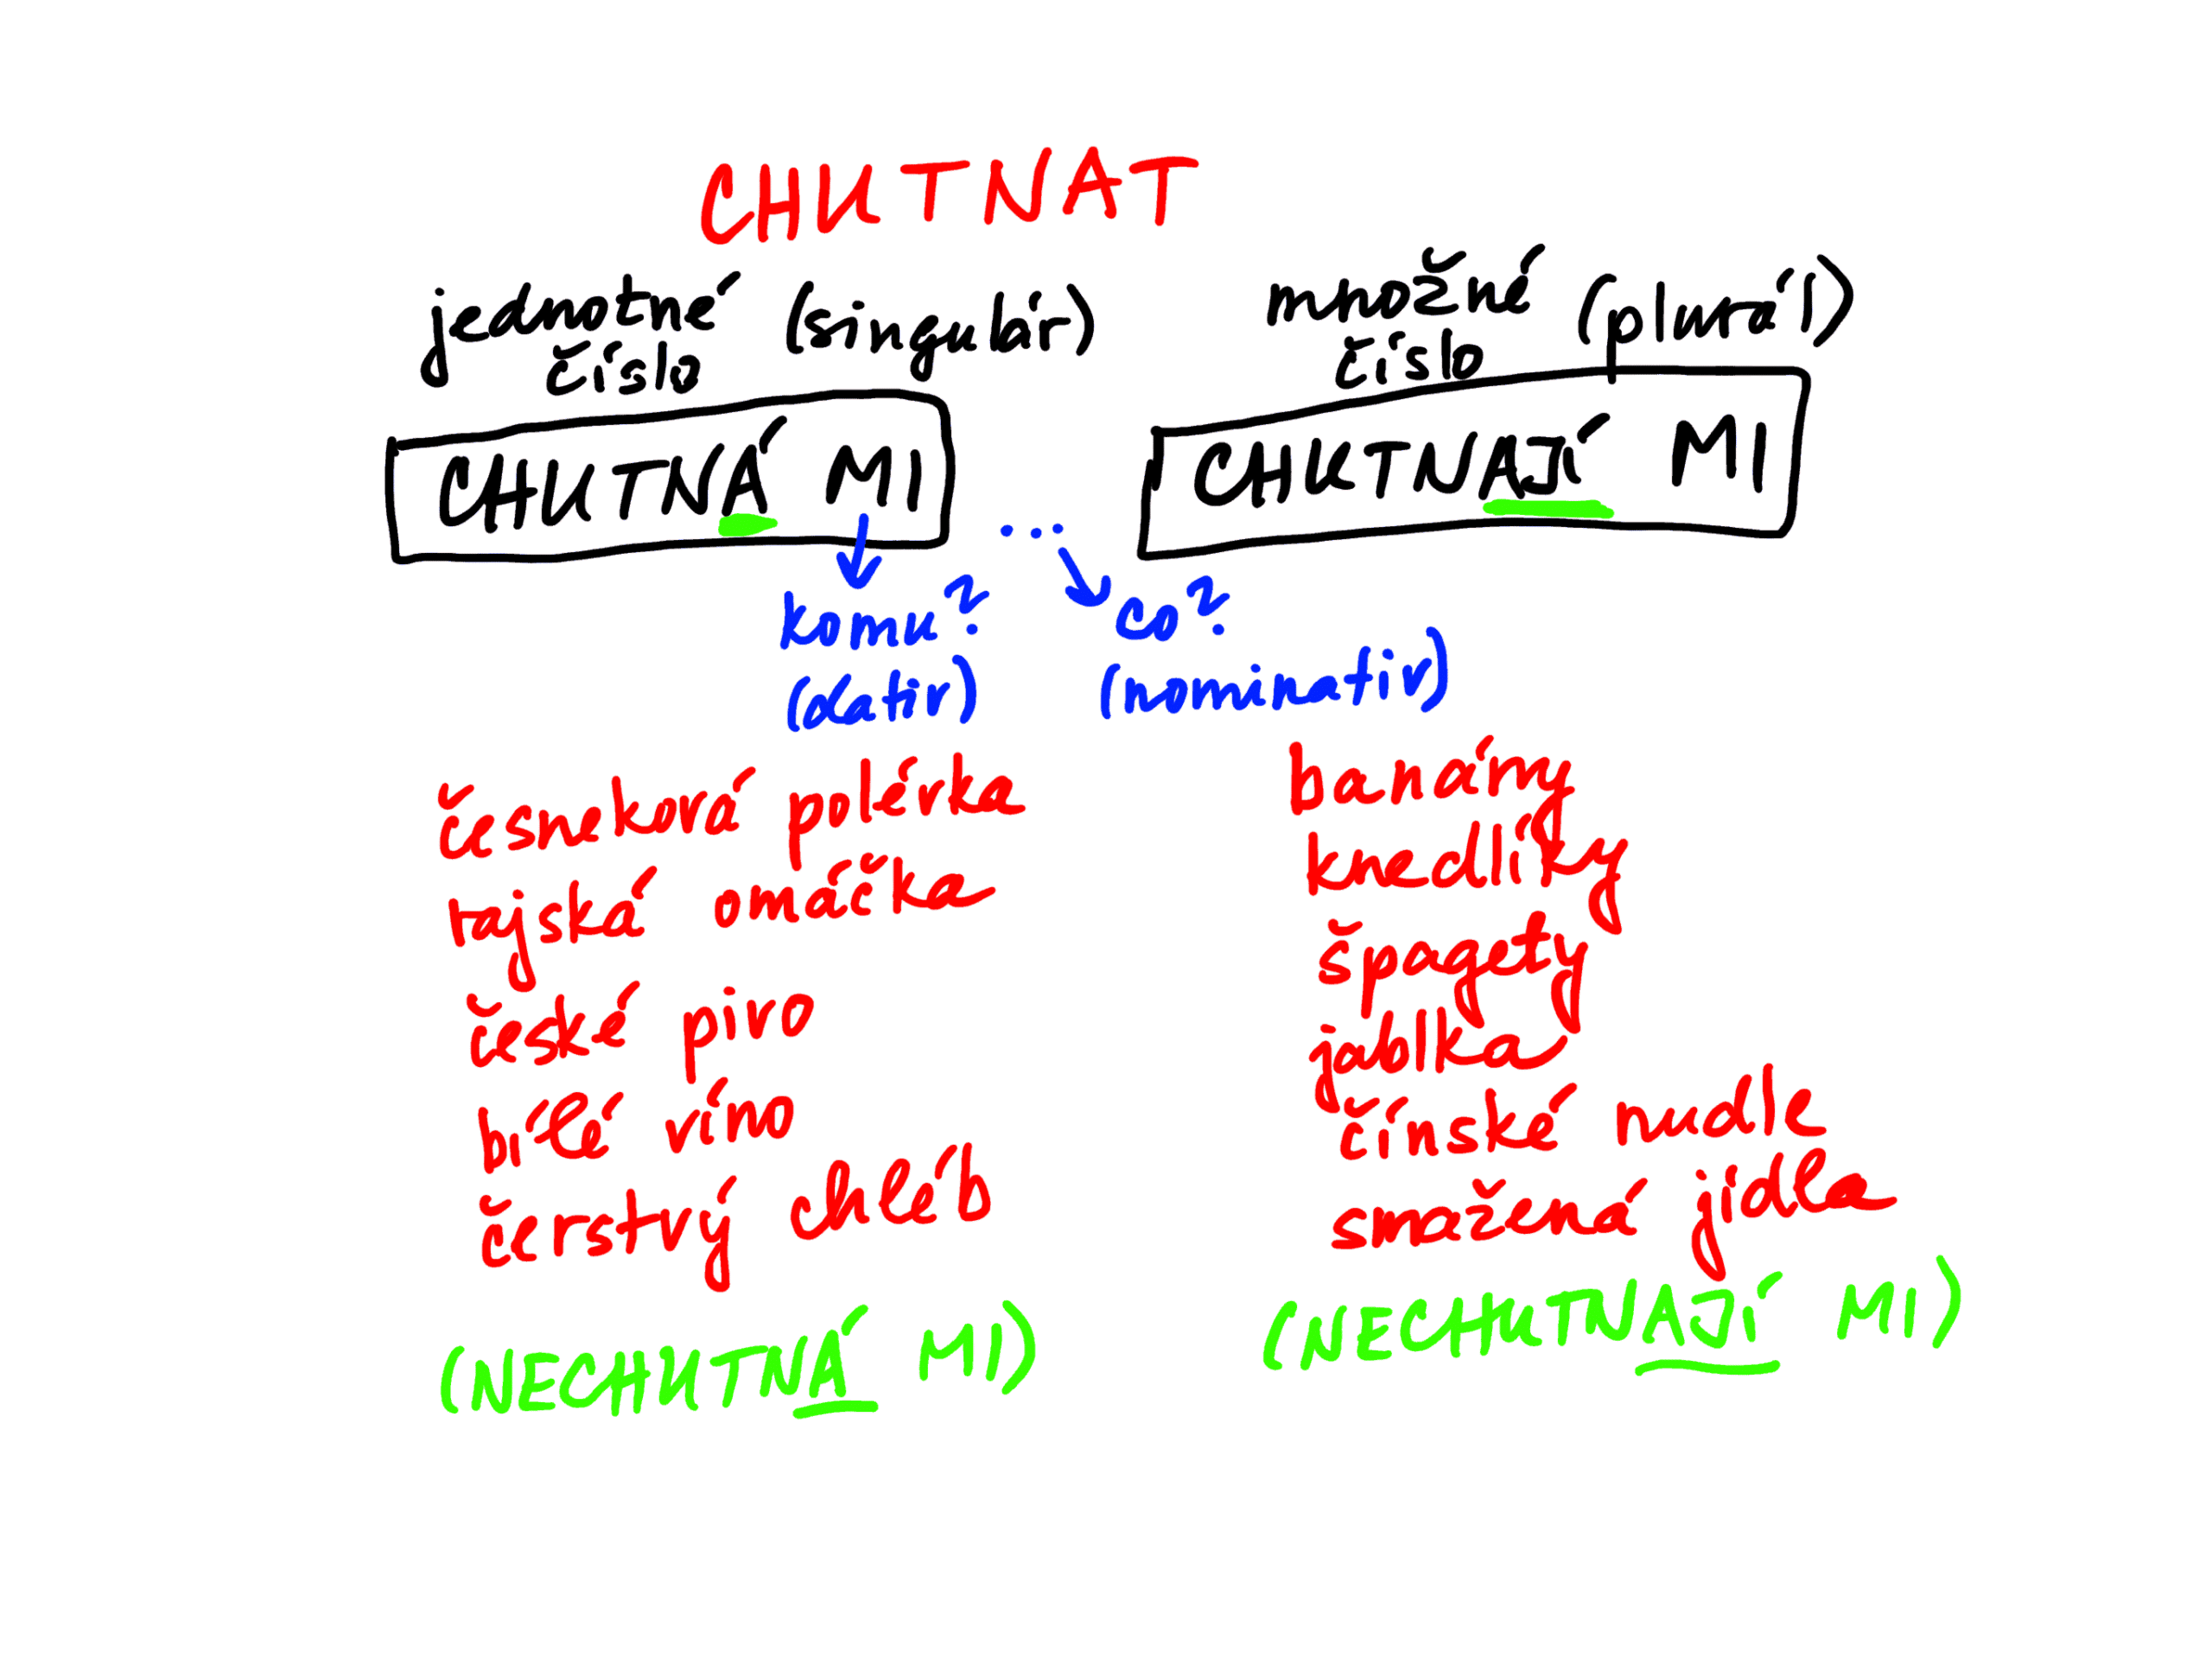 CHUTNAT
jednotné (singulár)
číslo
množné (plurál)
číslo
CHUTNÁ MI
CHUTNAJÍ MI
...
komu?
(dativ)
co?
(nominativ)
česneková polévka
rajská omáčka
české pivo
bílé víno
čerstvý chléb
(NECHUTNÁ MI)
banány
knedlíky
špagety
jablka
čínské nudle
smažená jídla
(NECHUTNAJÍ MI)